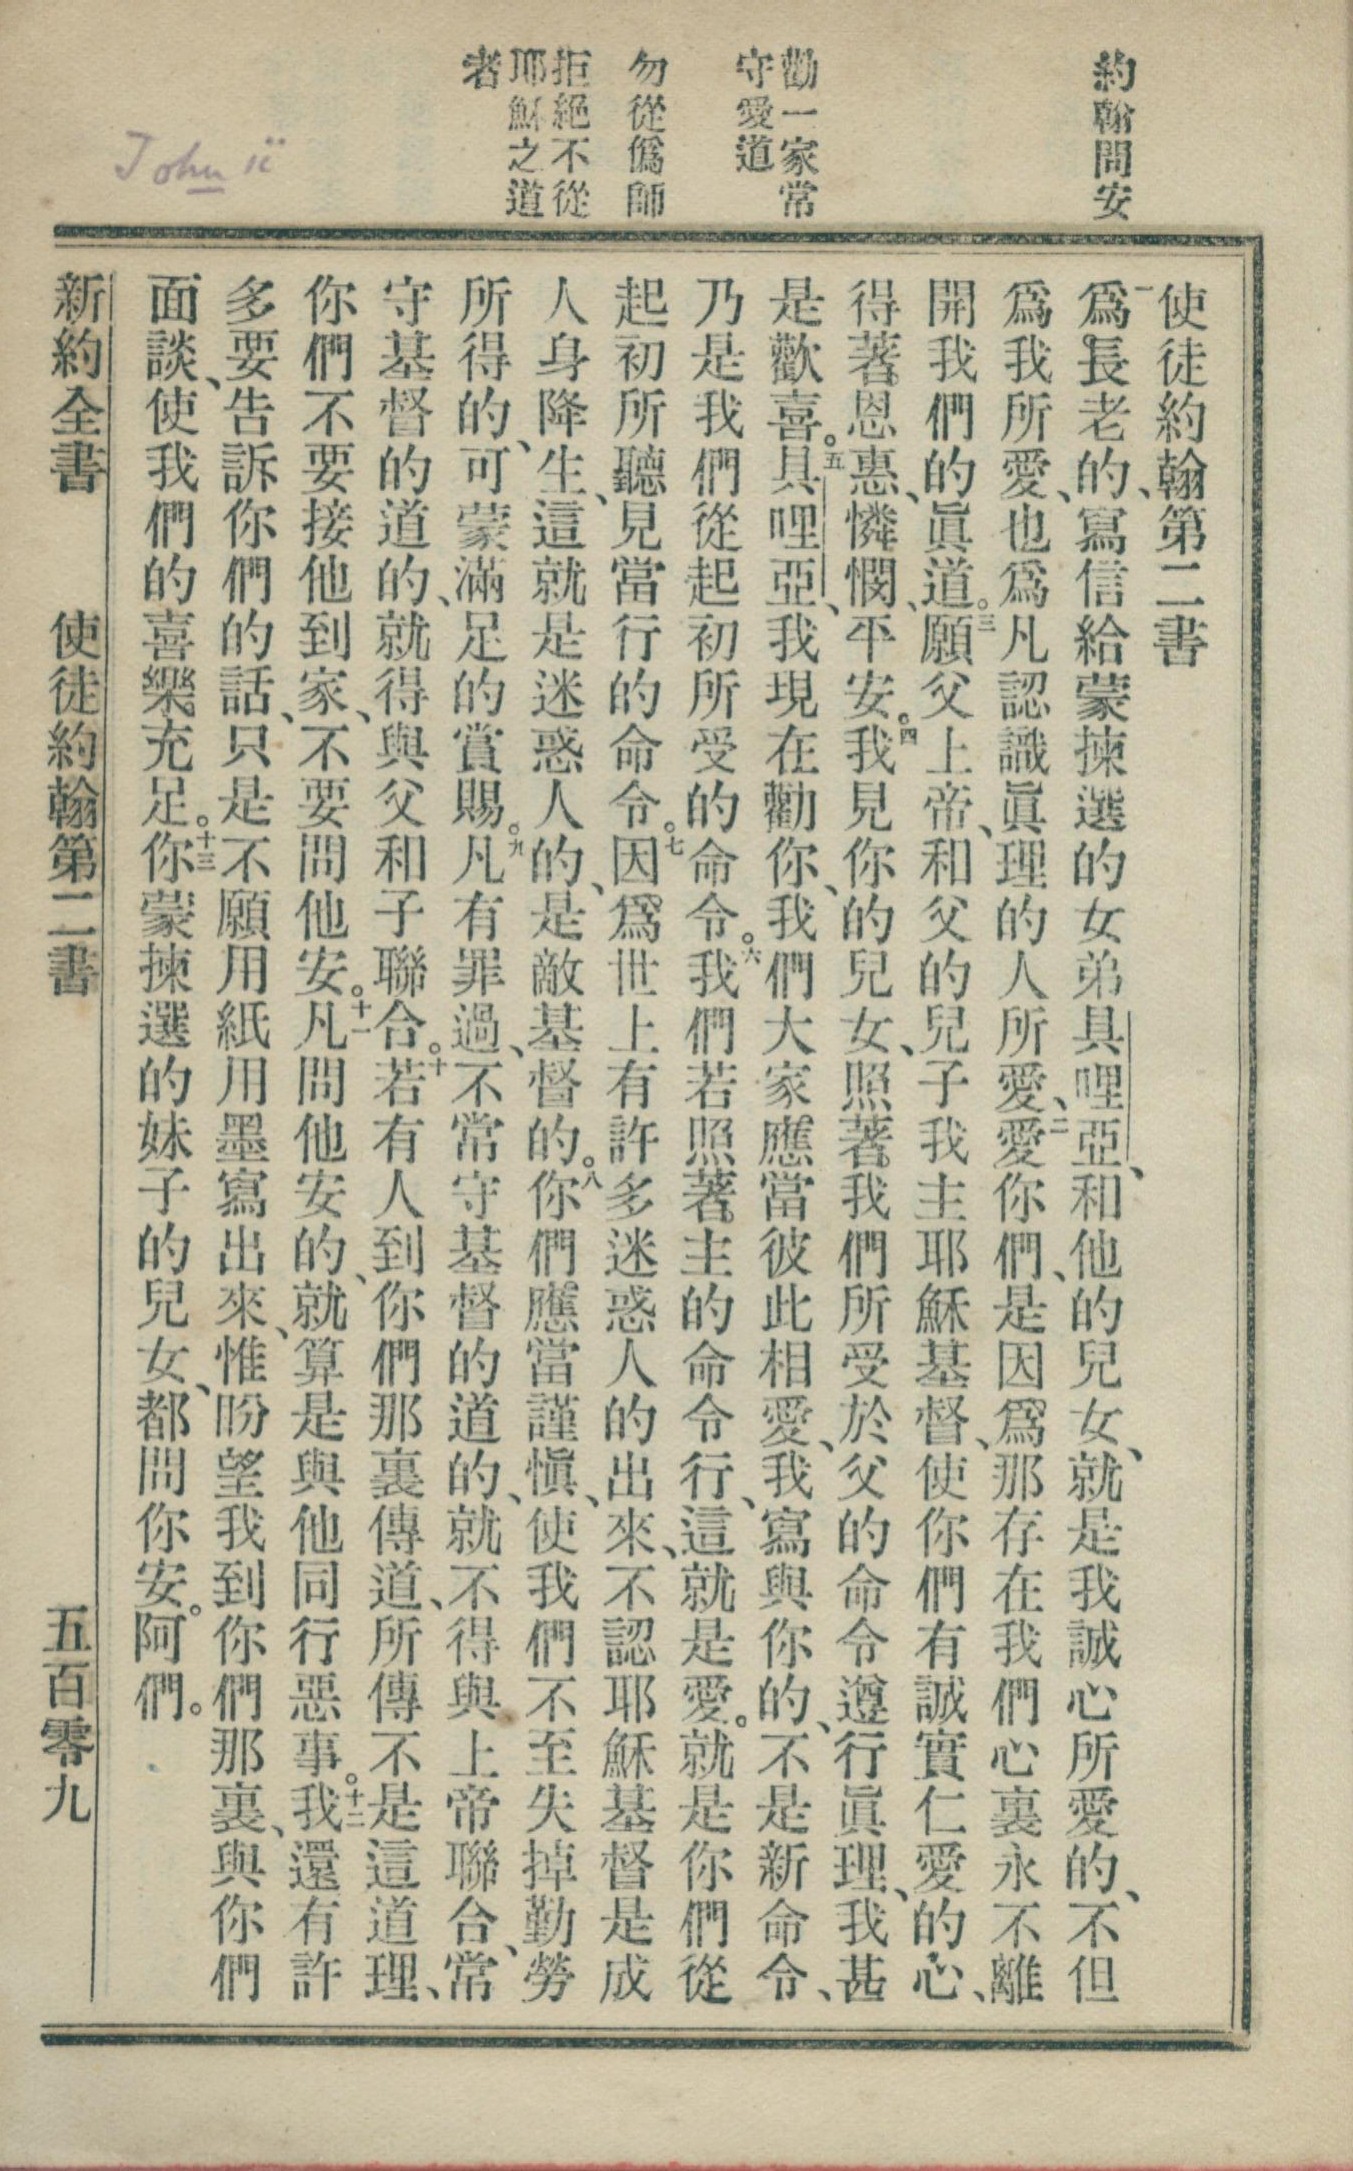 約翰問安
勸一家常
守愛道
勿從僞師
拒絕不從
耶穌之道
者
John ii
使徒約翰第二書
一爲長老的、寫信給蒙揀選的女弟具哩亞、和他的兒女、就是我誠心所愛的、不但
爲我所愛、也爲凡認識眞理的人所愛、二愛你們、是因爲那存在我們心裏永不離
開我們的眞道。三願父上帝、和父的兒子我主耶穌基督、使你們有誠實仁愛的心、
得著恩惠、憐憫、平安。四我見你的兒女、照著我們所受於父的命令遵行眞理、我甚
是歡喜。五具哩亞、我現在勸你、我們大家應當彼此相愛、我寫與你的、不是新命令、
乃是我們從起初所受的命令。六我們若照著主的命令行、這就是愛。就是你們從
起初所聽見當行的命令。七因爲世上有許多迷惑人的出來、不認耶穌基督是成
人身降生、這就是迷惑人的、是敵基督的。八你們應當謹愼、使我們不至失掉勤勞
所得的、可蒙滿足的賞賜。九凡有罪過、不常守基督的道的、就不得與上帝聯合、常
守基督的道的、就得與父和子聯合。十若有人到你們那裏傳道、所傳不是這道理、
你們不要接他到家、不要問他安。十一凡問他安的、就算是與他同行惡事。十二我還有許
多要告訴你們的話、只是不願用紙用墨寫出來、惟盼望我到你們那裏、與你們
面談、使我們的喜樂充足。十三你蒙揀選的妹子的兒女、都問你安。阿們。
新約全書　使徒約翰第二書　五百零九